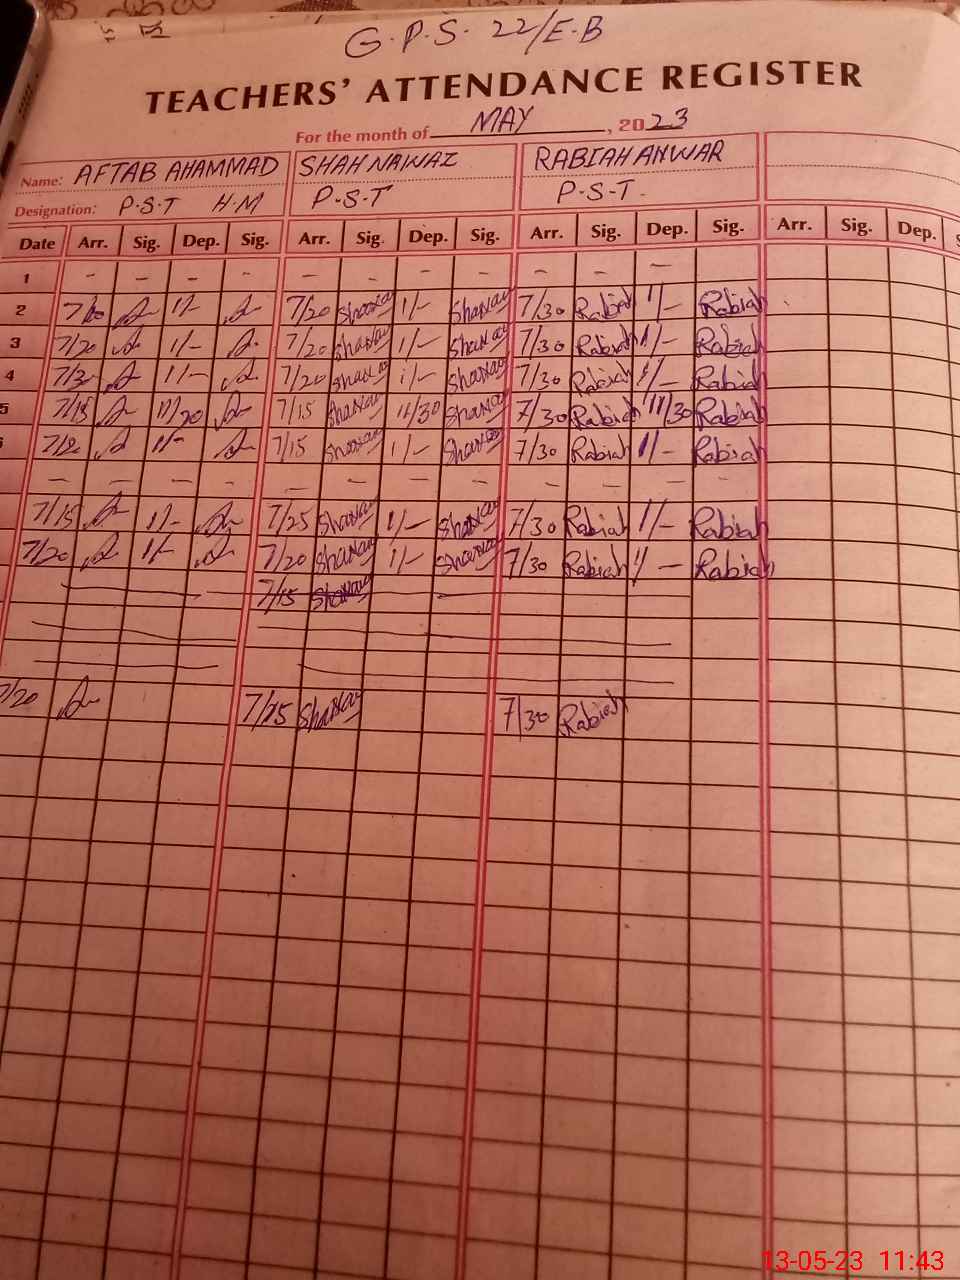 G.P.S. 22/E.B
TEACHERS' ATTENDANCE REGISTER
For the month of MAY, 2023
Name: AFTAB AHAMMAD SHAH NAWAZ RABIAH ANWAR
Designation: P.S.T H.M P.S.T P.S.T.
Date Arr. Sig. Dep. Sig. Arr. Sig. Dep. Sig. Arr. Sig. Dep. Sig. Arr. Sig. Dep. S
1 - - - - - - - - - - -
2 7/20 1/- 7/20 Shahnaw 1/- Shahnaw 7/30 Rabiah 1/- Rabiah
3 7/20 1/- 7/20 Shahnaw 1/- Shahnaw 7/30 Rabiah 1/- Rabiah
4 1/- 7/20 Shahnaw 1/- Shahnaw 7/30 Rabiah 1/- Rabiah
5 7/15 11/30 7/15 Shahnaw 11/30 Shahnaw 7/30 Rabiah 11/30 Rabiah
6 1/- 7/15 Shahnaw 1/- Shahnaw 7/30 Rabiah 1/- Rabiah
- - - - - - - - - - - -
7/15 1/- 7/25 Shahnaw 1/- Shahnaw 7/30 Rabiah 1/- Rabiah
7/20 1/- 7/20 Shahnaw 1/- Shahnaw 7/30 Rabiah 1/- Rabiah
7/15 Shahnaw
7/20 7/15 Shahnaw 7/30 Rabiah
13-05-23 11:43